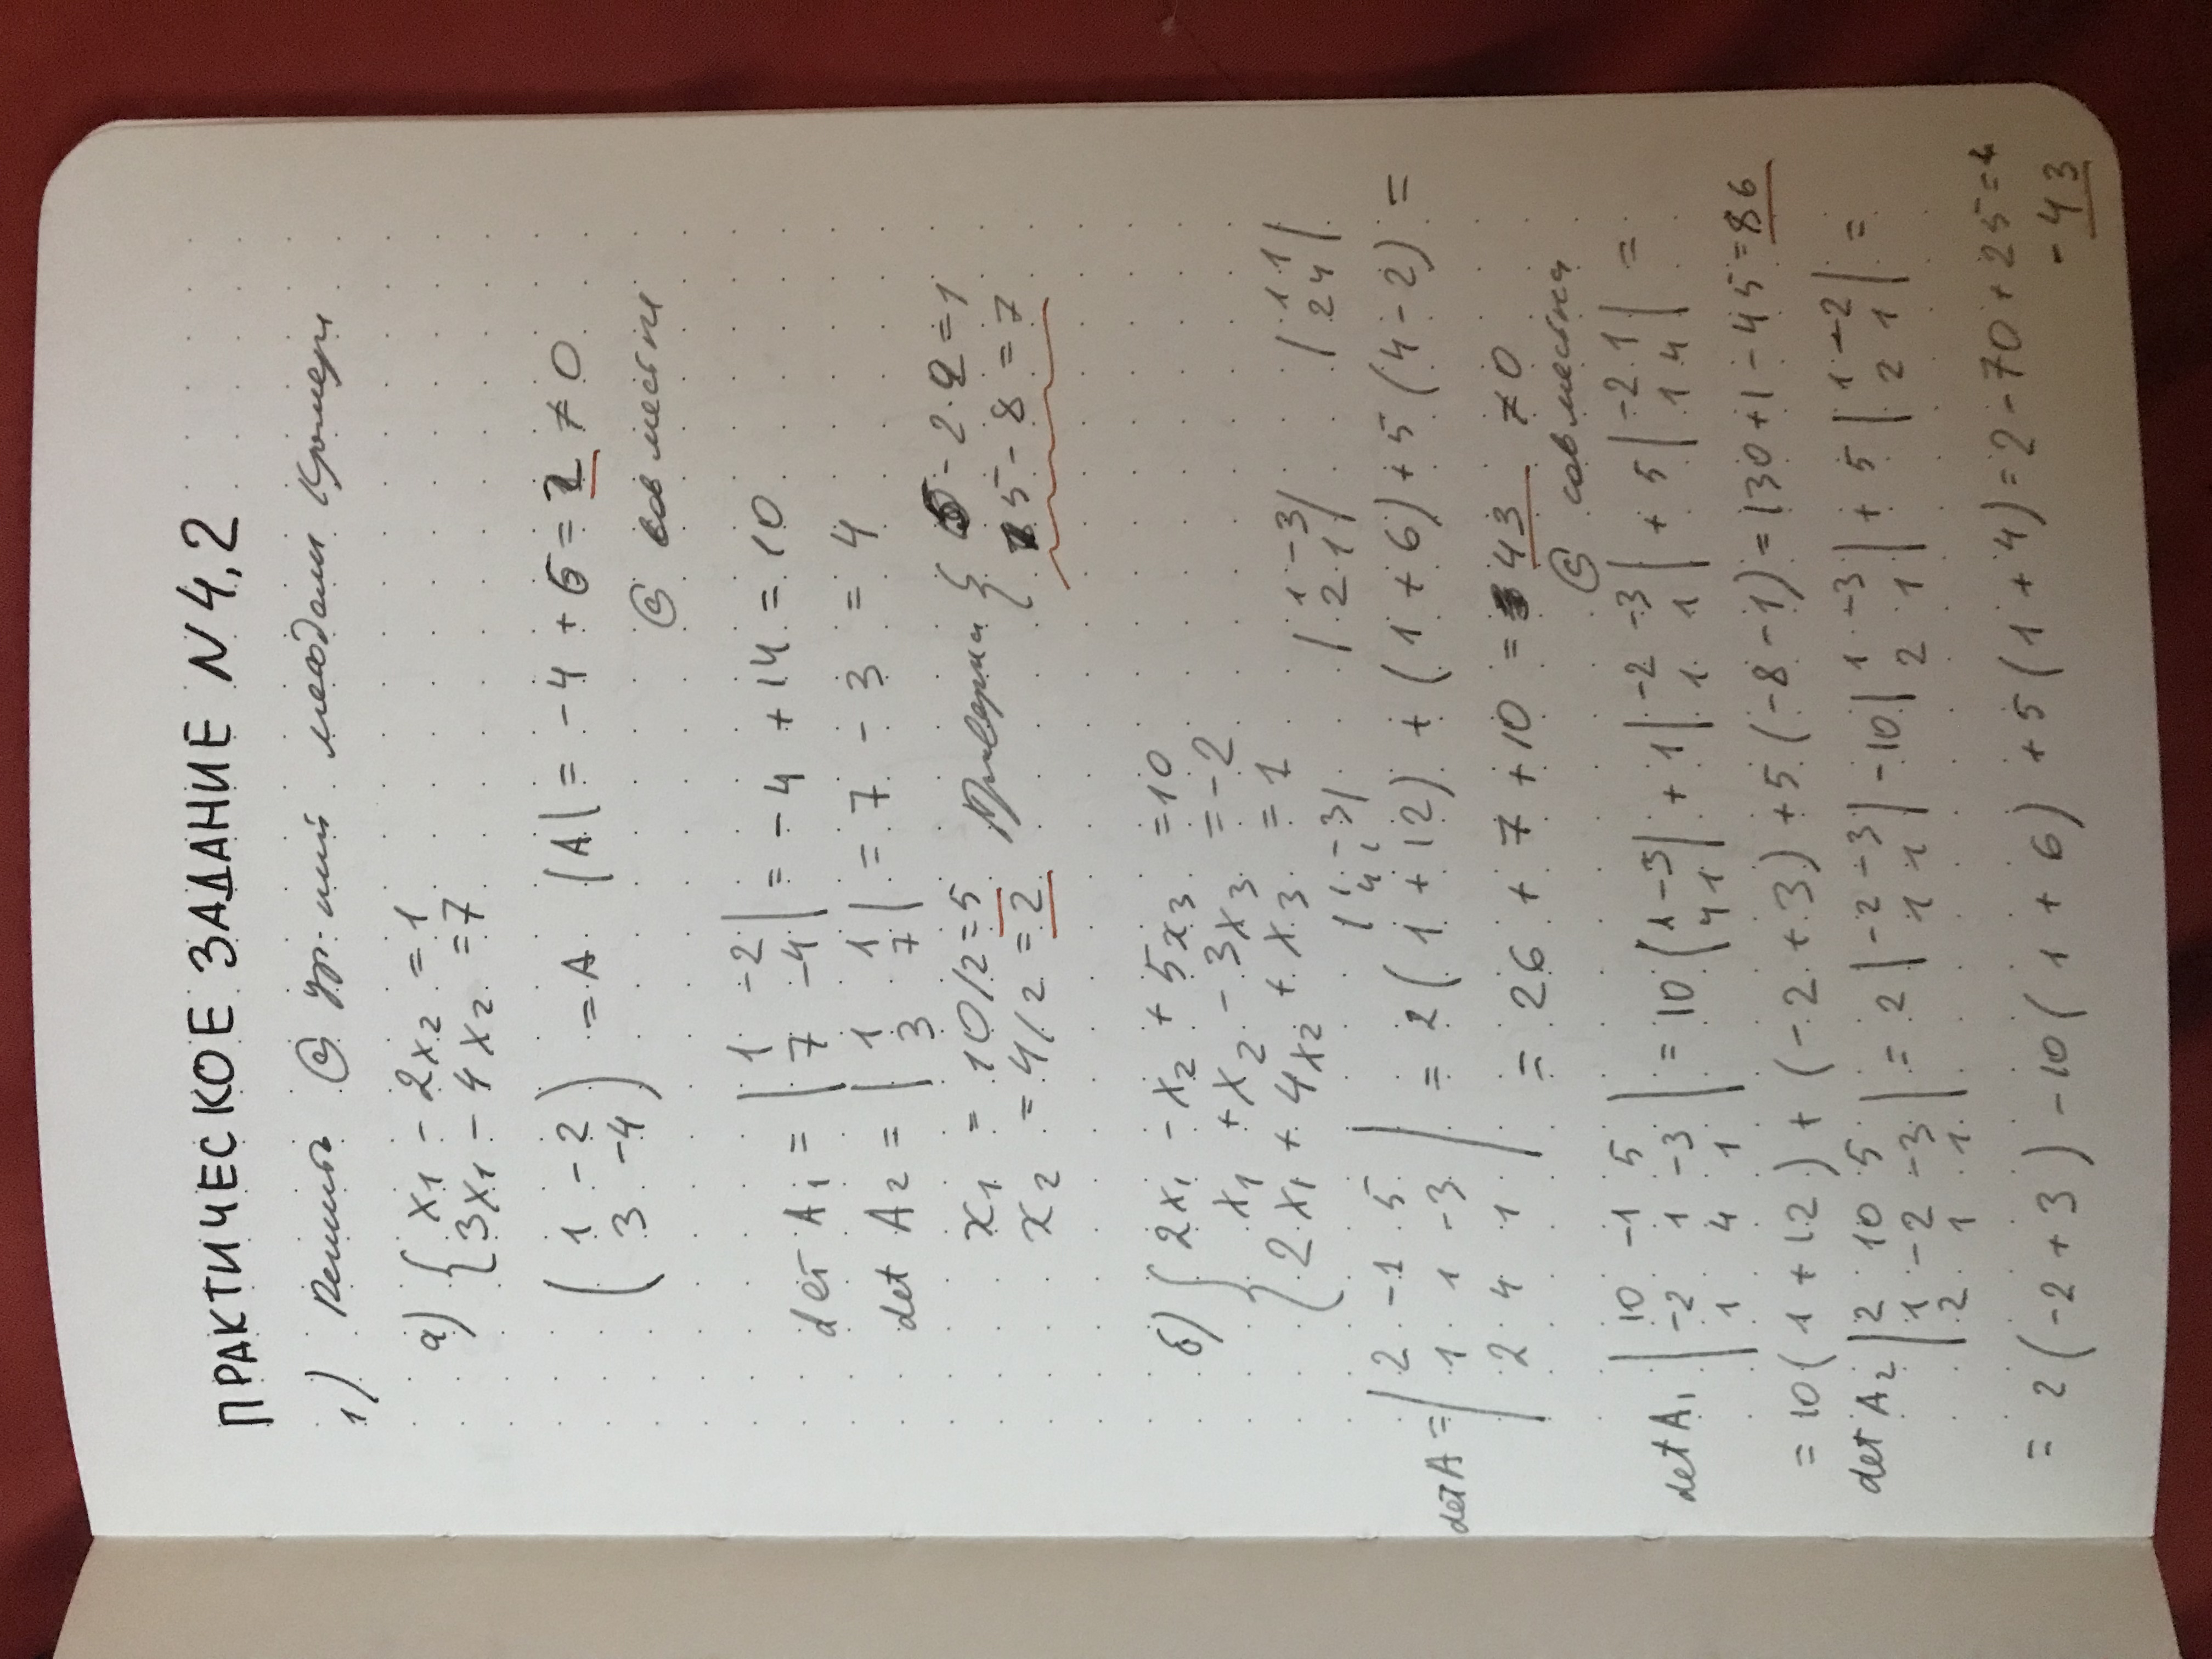 ПРАКТИЧЕСКОЕ ЗАДАНИЕ N 4,2
1) Решить Ⓢ ур-ний методом Крамера
а) { x1 - 2x2 = 1
3x1 - 4x2 = 7
( 1 -2
3 -4 ) = A |A| = -4 + 6 = 2 ≠ 0
Ⓢ совместна
det A1 = | 1 -2
7 -4 | = -4 + 14 = 10
det A2 = | 1 1
3 7 | = 7 - 3 = 4
x1 = 10/2 = 5 Проверка { 5 - 2·2 = 1
x2 = 4/2 = 2 15 - 8 = 7
б) { 2x1 - x2 + 5x3 = 10
x1 + x2 - 3x3 = -2
2x1 + 4x2 + x3 = 1
| 1 -3
4 1 | | 1 -3
2 1 | | 1 1
2 4 |
det A = | 2 -1 5
1 1 -3
2 4 1 | = 2(1 + 12) + (1 + 6) + 5(4 - 2) =
= 26 + 7 + 10 = 43 ≠ 0
Ⓢ совместна
det A1 | 10 -1 5
-2 1 -3
1 4 1 | = 10 | 1 -3
4 1 | + 1 | -2 -3
1 1 | + 5 | -2 1
1 4 | =
= 10(1 + 12) + (-2 + 3) + 5(-8 - 1) = 130 + 1 - 45 = 86
det A2 | 2 10 5
1 -2 -3
2 1 1 | = 2 | -2 -3
1 1 | - 10 | 1 -3
2 1 | + 5 | 1 -2
2 1 | =
= 2(-2 + 3) - 10(1 + 6) + 5(1 + 4) = 2 - 70 + 25 =
-43